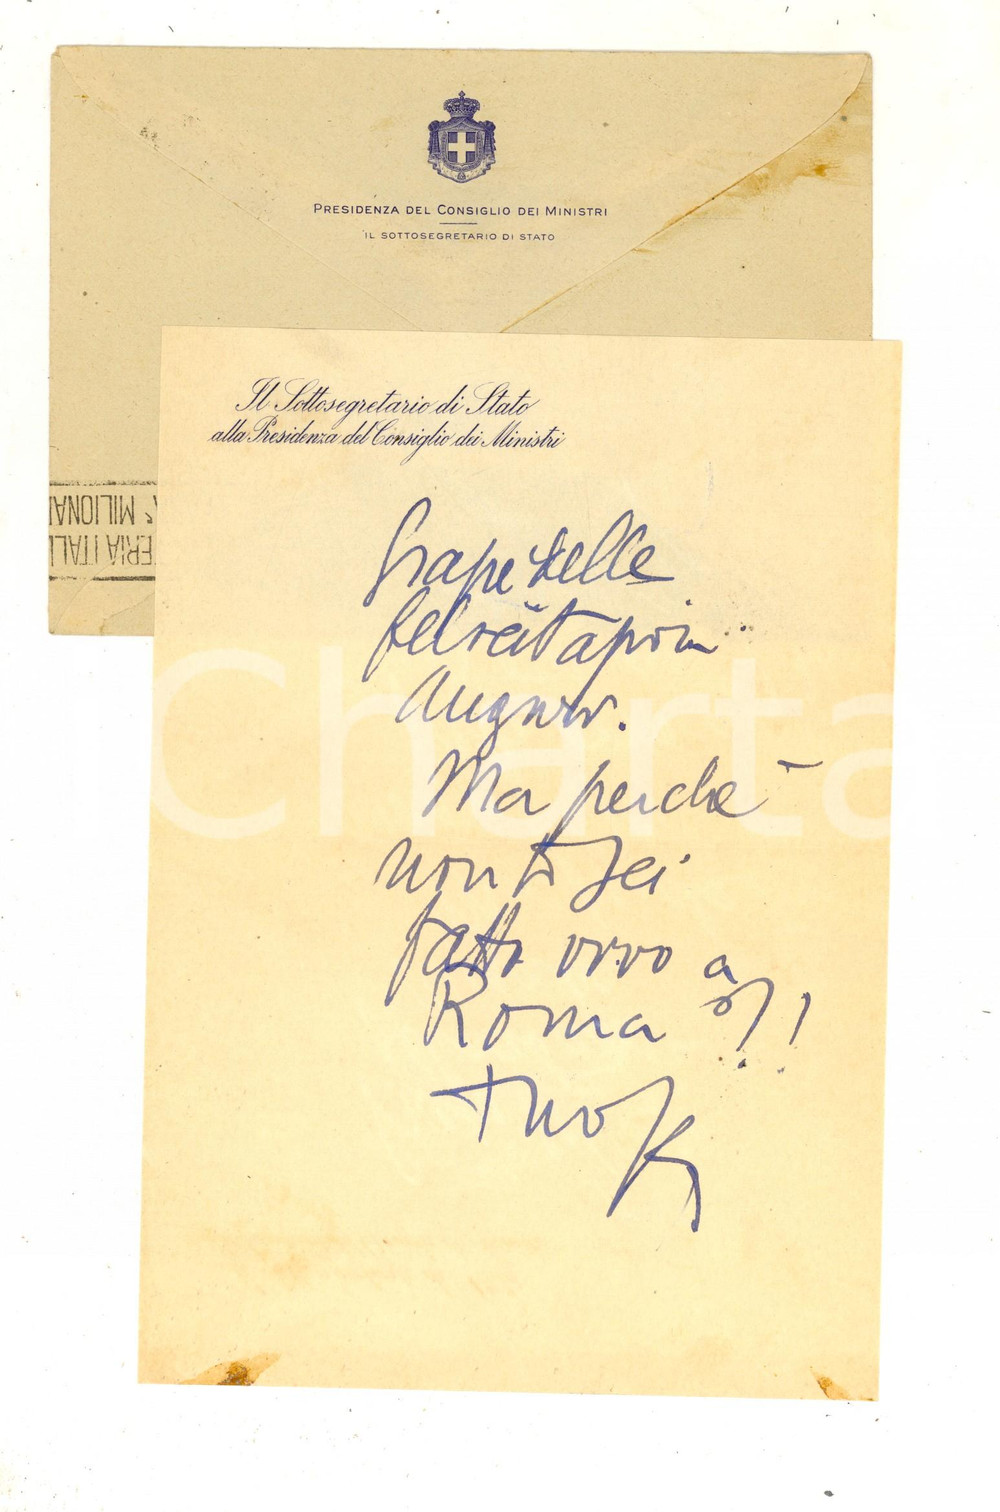 PRESIDENZA DEL CONSIGLIO DEI MINISTRI
IL SOTTOSEGRETARIO DI STATO
Il Sottosegretario di Stato
alla Presidenza del Consiglio dei Ministri
MILIONA
ERIA ITALI
Grazie delle
felicitazioni
Auguri.
Ma perchè
non ti sei
fatto vivo a
Roma ?!
Tuo
iCharta